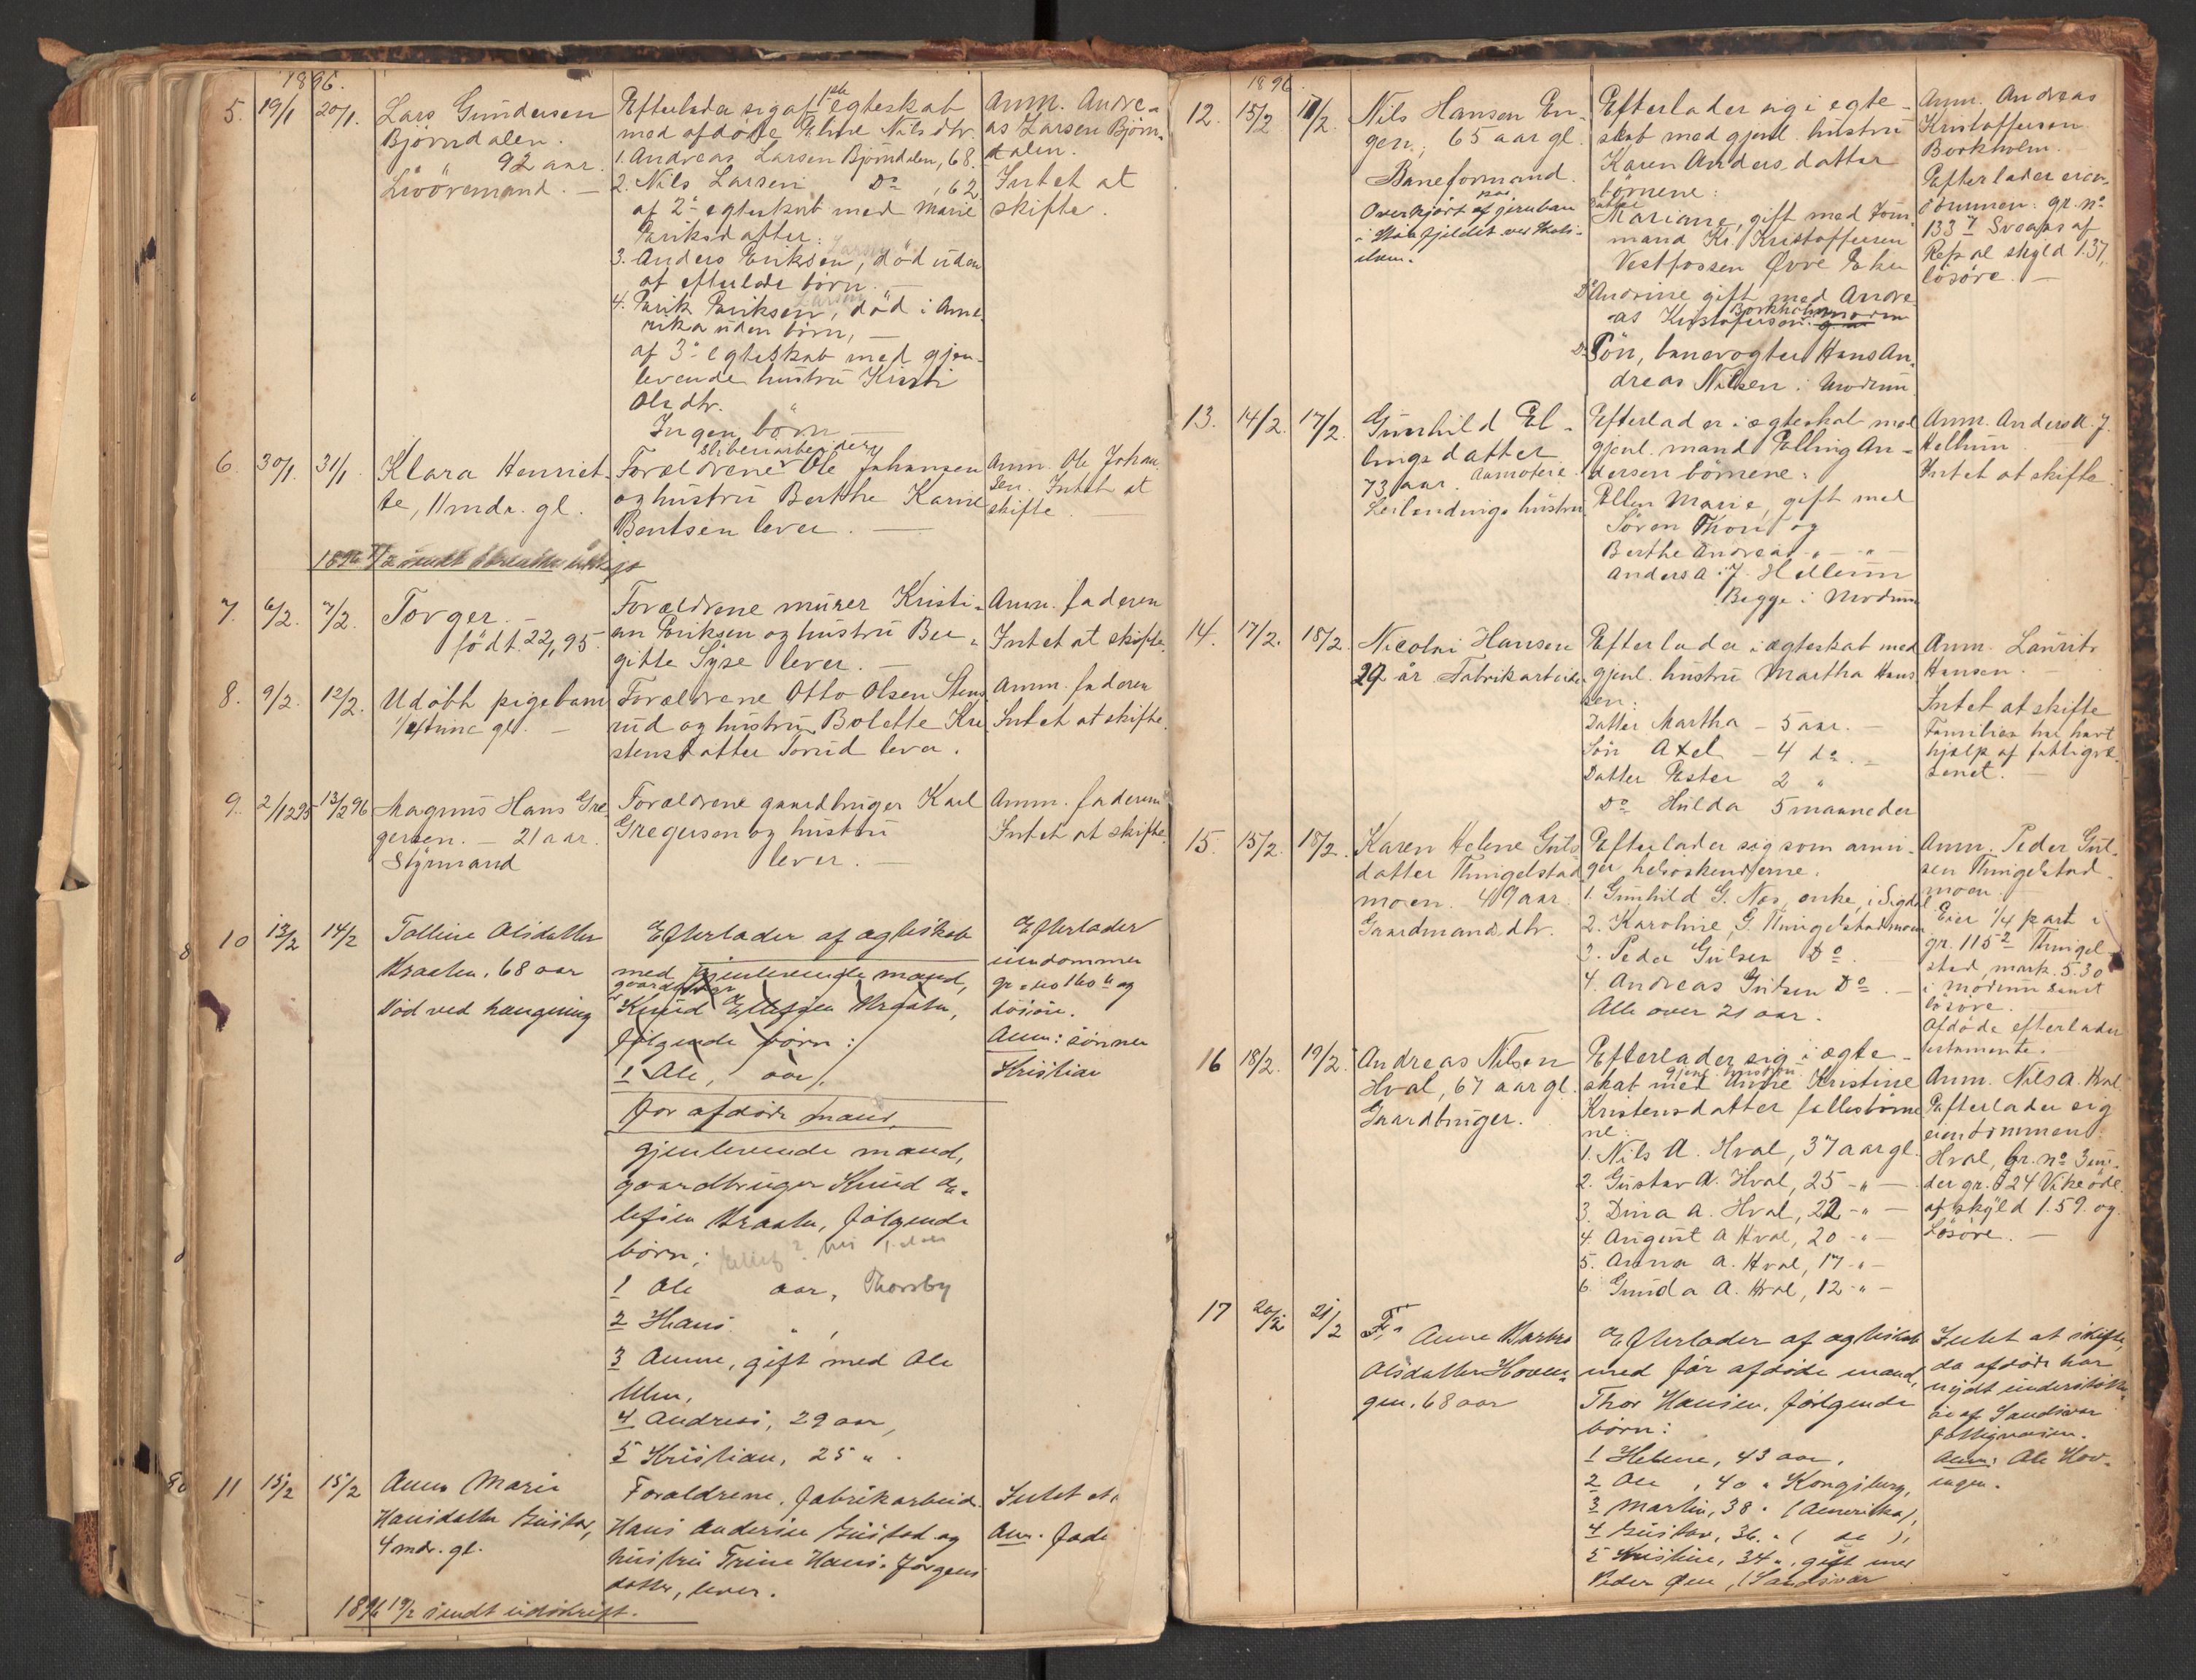 1896.
5. 19/1 20/1. Lars Gundersen
Björndalen.
92 aar.
Livöremand. —
Efterlader sig af 1ste egteskab
med afdöde Eline Nilsdtr.
1. Andreas Larsen Björndalen, 68.
2. Nils Larsen Do , 62
af 2et egteskab med Marie
Eriksdatter:
Larsen
3. Anders Eriksen, död uden
at efterlade börn. —
Larsen
4. Erik Eriksen, död i Ame-
rika uden börn, —
af 3die egteskab med gjen-
levende hustru Kirsti
Olsdtr.
Ingen börn —
Anm. Andre-
as Larsen Björn-
dalen.
Intet at
skifte.
6. 30/1. 31/1 Klara Henriet-
te, 11 mdr. gl.
sliberiarbeider
Forældrene Ole Johansen
og hustru Berthe Karine
Bentsen lever. —
Anm. Ole Johan-
sen. Intet at
skifte.
7. 6/2. 7/2. Torger. —
födt 22/1 95.
Forældrene murer Kristi-
an Eriksen og hustru Ber-
gitte Syse lever. —
Anm. faderen
Intet at skifte.
8. 9/2. 12/2. Udöbt pigebarn
time gl. —
Forældrene Otto Olsen Stens-
rud og hustru Bolette Kri
stensdatter Torud lever.
Anm. faderen
Intet at skifte.
9. 2/12 95 13/2 96 Magnus Hans Gre-
gersen. — 21 aar.
Styrmand
Forældrene gaardbruger Karl
Gregersen og hustru
lever. —
Anm. faderen
Intet at skifte.
10 13/2 14/2 Tolline Olsdatter
Braaten, 68 aar
Död ved hængning
Efterlader af ægteskab
med gjenlevende mand,
gaardbruger
Knud Ellefsen Braaten,
følgende børn:
1 Ole, aar,
før afdøde mand,
gjenlevende mand,
gaardbruger Knud El-
lefsen Braaten, følgende
børn:
1 Ole aar, Thorsby
2 Hans " ,
3 Anne, gift med Ole
Ulen,
4 Andreas, 29 aar,
5 Kristian, 25 " .
Efterlader
eiendommen
og
løsøre.
Anm: sønnen
Kristian
11 15/2 15/2 Anna Marie
Hansdatter Gustad,
4 mdr. gl.
Forældrene, fabrikarbeid.
Hans Andersen Gustad og
hustru Trine Hans Jørgens
datter, lever.
Intet at,
Anm. fade
1896 19/2 sendt udskrift.
1896.
12. 15/2 17/2. Nils Hansen En-
gen, 65 aar gl.
Baneformand.
paa
Overkjört af jernban
Efterlader sig i egte-
skab med gjenl. hustru
Karen Andersdatter
börnene:
Datter
Mariane, gift med Form
mand Kr. Kristoffersen
Vestfossen Øvre Eker
Do Andrine gift med Andre-
Borkholm
as Kristofersen
Sön, banevogter Hans An-
dreas Nilsen i Modum
Anm. Andreas
Kristoffersen
Borkholm.
Efterlader eien-
dommen: gr. no
133
af skyld 1.37,
lösöre. —
13. 14/2. 17/2. Gunhild El-
lingsdatter
73 aar. Aamotseie
Leilendings hustru
Efterlader i ægteskab med
gjenl. mand Elling An-
dersen börnene:
Ellen Marie, gift med
Sören Thon og
Berthe Andrea - " - " -
Anders A. J. Hellum
Begge i Modum
Anm. Anders A. J.
Hellum
Intet at skifte.
14. 17/2. 18/2. Nicolai Hansen
29 år Fabrikarbeider
Efterlader i ægteskab med
gjenl. hustru Martha Hans
sen:
Datter Martha — 5 aar. —
Sön Axel — 4 do. —
Datter Ester 2 "
Do Hulda 5 maaneder
Anm. Laurits
Hansen. —
Intet at skifte
Familien har havt
hjælp af fattigvæ-
senet. —
15. 15/2. 18/2. Karen Helene Guls
datter Thingelstad
moen. 49 aar.
Gaardmandsdtr.
Efterlader sig som arvin-
ger helsöskenderne.
1. Gunhild G. Næs, enke, i Sigdal
2. Karoline G. Thingelstadmoen
3. Peder Gulsen Do —
4. Andreas Gulsen Do. —
Alle over 21 aar.
Anm. Peder Gul-
sen Thingelstad-
moen. —
Eier 1/4 part i
gr. 115 2 Thingel-
stad, mark. 5.30
i Modum samt
lösöre. —
Afdöde efterlader
testamente. —
16 18/2. 19/2. Andreas Nilsen
Hval, 67 aar gl.
Gaardbruger.
Efterlader sig i ægte-
gjenl. hustru
skab med Anne Kristine
Kristensdatter fællesbörne
ne:
1. Nils A. Hval, 37 aar gl.
2. Gustav A. Hval, 25 - " —
3. Dina A. Hval, 22 - " —
4. August A Hval, 20 - " —
5. Anna A. Hval, 17 - " —
6. Gunda A. Hval, 12 - " —
Anm. Nils A. Hval
Efterlader sig
eiendommen:
Hval, br. no 3 un-
der gr. 124
af skyld 1.59. og
Lösöre. —
17 20/2 21/2 Anne Marthea
Olsdatter Hoven-
gen, 68 aar
Efterlader af ægteskab
med før afdøde mand,
Thor Hansen, følgende
børn:
1 Helene, 43 aar,
2 Ole , 40 " Kongsberg,
3 Martin, 38 " (Amerika),
4 Gustav, 36 " ( do ),
5 Kristine, 34 ", gift med
Peder Øen, (Sandsvær
Intet at skifte,
da afdøde har
nydt understøttel-
se af Sandsvær
fattigvæsen.
Anm: Ole Hov-
ingen.